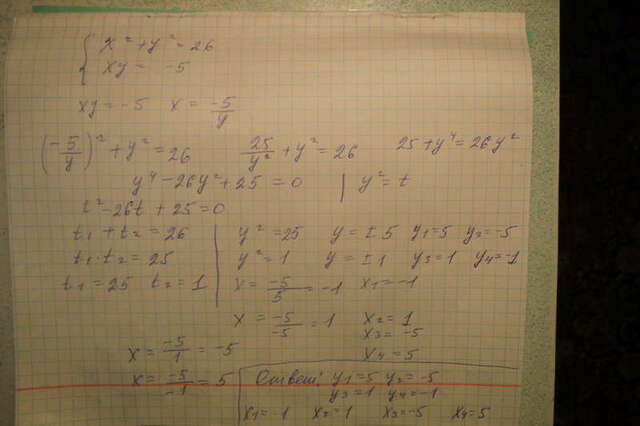 { x² + y² = 26
xy = -5
xy = -5   x = -5/y
(-5/y)² + y² = 26   25/y² + y² = 26   25 + y⁴ = 26y²
y⁴ - 26y² + 25 = 0 | y² = t
t² - 26t + 25 = 0
t₁ + t₂ = 26 | y² = 25   y = ± 5   y₁ = 5   y₂ = -5
t₁ · t₂ = 25 | y² = 1   y = ± 1   y₃ = 1   y₄ = -1
t₁ = 25   t₂ = 1 | x = -5/5 = -1   x₁ = -1
x = -5/-5 = 1   x₂ = 1
x₃ = -5
x = -5/1 = -5   x₄ = 5
x = -5/-1 = 5 | Ответ: y₁ = 5   y₂ = -5
y₃ = 1   y₄ = -1
x₁ = -1   x₂ = 1   x₃ = -5   x₄ = 5